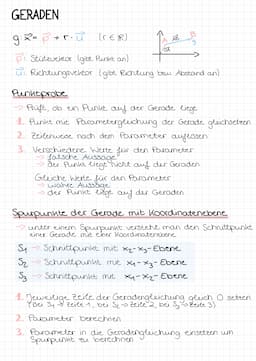 GERADEN
g: x⃗ = p⃗ + r · u⃗ (r ∈ ℝ)
A
B
g
p⃗: Stützvektor (gibt Punkt an)
u⃗: Richtungsvektor (gibt Richtung bzw. Abstand an)
Punktprobe
→ Prüft, ob ein Punkt auf der Gerade liegt
1. Punkt mit Parametergleichung der Gerade gleichsetzen
2. Zeilenweise nach dem Parameter auflösen
3. Verschiedene Werte für den Parameter
→ falsche Aussage
→ der Punkt liegt nicht auf der Geraden
Gleiche Werte für den Parameter
→ wahre Aussage
→ der Punkt liegt auf der Geraden
Spurpunkte der Gerade mit Koordinatenebene
→ unter einem Spurpunkt versteht man den Schnittpunkt
einer Gerade mit einer Koordinatenebene
S₁ → Schnittpunkt mit x₂-x₃-Ebene
S₂ → Schnittpunkt mit x₁-x₃-Ebene
S₃ → Schnittpunkt mit x₁-x₂-Ebene
1. Jeweilige Zeile der Geradengleichung gleich 0 setzen
(bei S₁ → Zeile 1, bei S₂ → Zeile 2, bei S₃ → Zeile 3)
2. Parameter berechnen
3. Parameter in die Geradengleichung einsetzen um
Spurpunkt zu berechnen